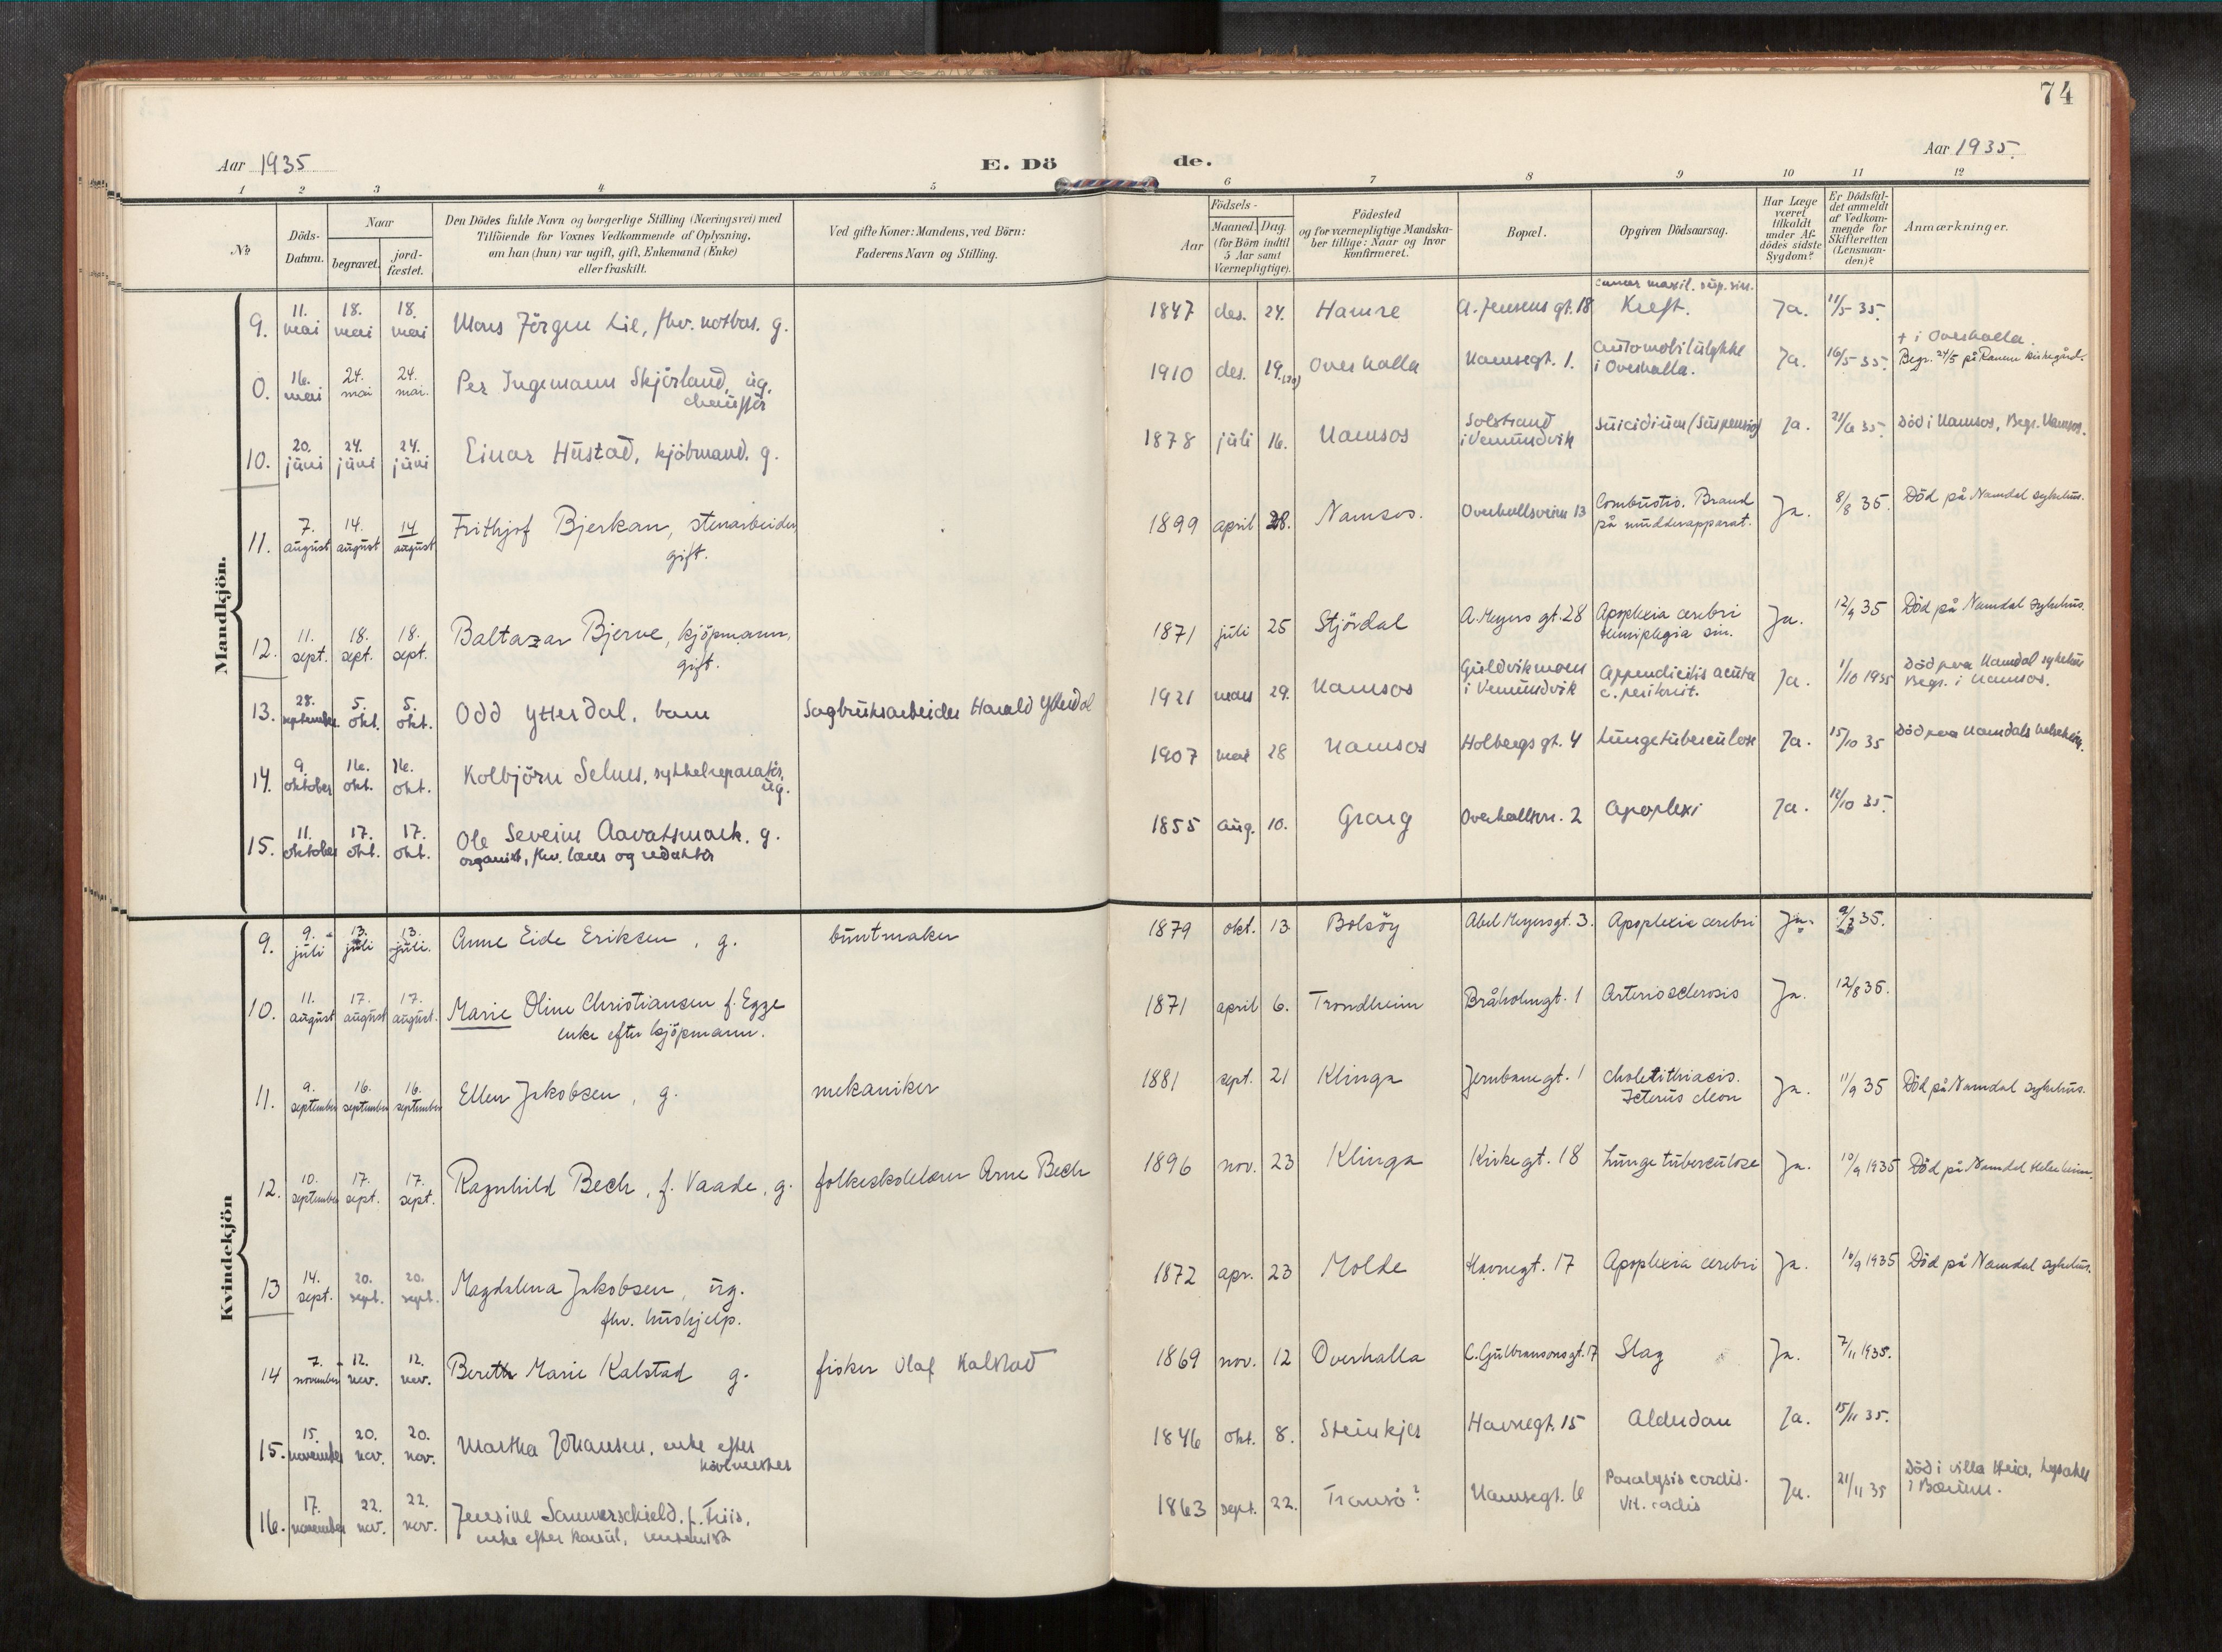 74
Aar 1935
E. Dö de.
Aar 1935.
1 2 3 4 5 6 7 8 9 10 11 12
No.
Döds-
Datum.
Naar
begravet.
jord-
fæstet.
Den Dödes fulde Navn og borgerlige Stilling (Næringsvei) med
Tilföiende for Voxnes Vedkommende af Oplysning,
om han (hun) var ugift, gift, Enkemand (Enke)
eller fraskilt.
Ved gifte Koner: Mandens, ved Börn:
Faderens Navn og Stilling.
Födsels-
Aar
Maaned. Dag.
(for Börn indtil
5 Aar samt
Værnepligtige).
Födested
og for værnepligtige Mandska-
ber tillige: Naar og hvor
konfirmeret.
Bopæl.
Opgiven Dödsaarsag.
Har Læge
været
tilkaldt
under Af-
dödes sidste
Sygdom?
Er Dödsfal-
det anmeldt
af Vedkom-
mende for
Skifteretten
(Lensman-
den)?
Anmærkninger.
Mandkjön.
9. 11. mai 18. mai 18. mai Mons Jörgen Lie, fhv. notbas. g. 1847 des. 24. Hamre A. Jensens gt. 18 cancer maxil. sup. sin. Kreft. Ja. 11/5 35.
0. 16. mai 24. mai 24. mai. Per Ingemann Skjörland, ug. chaufför 1910 des. 19. Overhalla Namsegt. 1. automobilulykke i Overhalla. Ja. 16/5 35. + i Overhalla. Begr. 24/5 på Ranem kirkegård.
10. 20. juni 24. juni 24. juni Einar Hustad, kjöbmand. g. 1878 juli 16. Namsos Solstrand i Vemundvik Suicidium (Suspensio) Ja. 21/6 35. Död i Namsos, Begr. Namsos.
11. 7. august 14. august 14 august Frithjof Bjerkan, stenarbeider, gift. 1899 april 28. Namsos. Overhallsveien 13 Combustio. Brand på mudderapparat. Ja. 8/8 35. Död på Namdal sykehus.
12. 11. sept. 18. sept. 18. sept. Baltazar Bjerve, kjöpmann, gift. 1871 juli 25 Stjördal A. Meyers gt. 28 Apoplexia cerebri hemiplegia sin. Ja. 12/9 35 Död på Namdal sykehus.
13. 28. september 5. okt. 5. okt. Odd Ytterdal, barn Sagbruksarbeider Harald Ytterdal 1921 mars 29. Namsos Guldvikmoen i Vemundvik Appendicitis acuta c. peritonit. Ja. 1/10 1935 Död paa Namdal sykehus Begr. i Namsos.
14. 9. oktober 16. okt. 16. okt. Kolbjörn Selnes, sykkelreparatör, ug. 1907 mai 28 Namsos Holbergs gt. 4 Lungetuberculose Ja. 15/10 35 Död paa Namdals helseheim.
15. 11. oktober 17. okt. 17. okt. Ole Severin Aavatsmark. g. organist, fhv. lærer og redaktör 1855 aug. 10. Grong Overhallsvn. 2 Apoplexi Ja. 12/10 35.
Kvindekjön
9. 9. juli 13. juli 13. juli. Anne Eide Eriksen, g. buntmaker 1879 okt. 13 Bolsöy Abel Meyersgt. 3. Apoplexia cerebri Ja. 9/7 35.
10. 11. august 17. august 17. august. Marie Oline Christiansen f. Egge enke efter kjöpmann. 1871 april 6. Trondheim Bråholmgt. 1 Arteriosclerosis Ja. 12/8 35.
11. 9. september 16. september 16. september Ellen Jakobsen, g. mekaniker 1881 sept. 21 Klinga Jernbanegt. 1 Cholelithiasis. Icterus Ja. 11/9 35 Död på Namdal sykehus.
12. 10. september 17. sept. 17. sept. Ragnhild Bech, f. Vaade, g. folkeskolelærer Arne Bech 1896 nov. 23 Klinga Kirkegt. 18 Lungetuberculose Ja. 10/9 1935 Död på Namdal Helseheim.
13 14. sept. 20. sept. 20. sept. Magdalena Jakobsen, ug. fhv. hushjelp. 1872 apr. 23 Molde Havnegt. 17 Apoplexia cerebri Ja. 16/9 1935 Död på Namdal sykehus.
14 7. november 12. nov. 12. nov. Bereth Marie Kalstad g. fisker Olaf Kalstad 1869 nov. 12 Overhalla C. Gulbransonsgt. 17 Slag Ja. 7/11 1935.
15. 15. november 20. nov. 20. nov. Martha Johansen, enke efter 1846 okt. 8. Steinkjer Havnegt. 15 Alderdom Ja. 15/11 35.
16. 17. november 22. nov. 22. nov. Jensine Sommerschield, f. Friis, enke efter konsul, 1863 sept. 22. Tromsö? Namsegt. 6 Paralysis cordis. Vit. cordis Ja. 21/11 35 Död i villa Lysaker i Bærum.